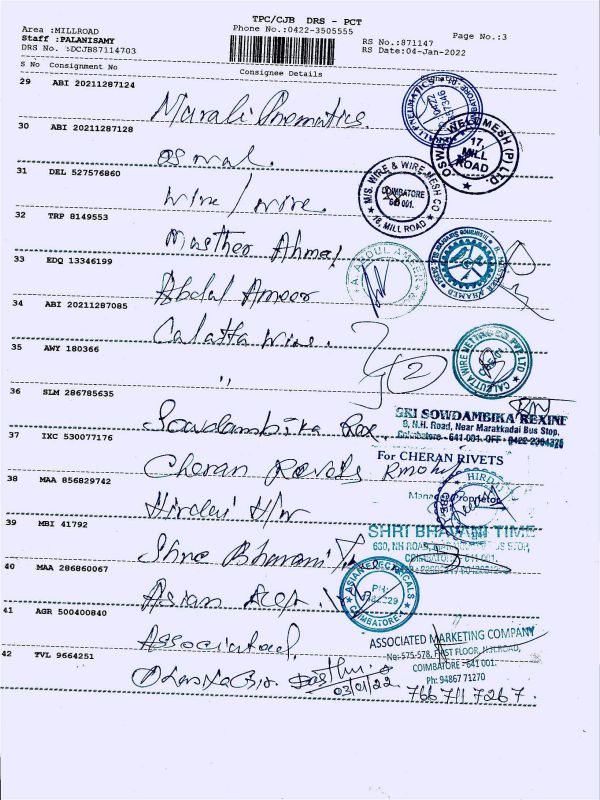 TPC/CJB DRS - PCT
Area :MILLROAD
Phone No.:0422-3505555
Page No.:3
Staff :PALANISAMY
RS No.:871147
DRS No. :DCJB87114703
RS Date:04-Jan-2022
S No Consignment No
Consignee Details
29 ABI 20211287124
Murali Pnematics.
30 ABI 20211287128
Oswal.
17,
MILL
ROAD
31 DEL 527576860
Wire / Wire.
M/S. WIRE & WIRE MESH CO
COIMBATORE
641 001.
18, MILL ROAD
32 TRP 8149553
Musther Ahmed
33 EDQ 13346199
Abdul Ameer
A. ABDUL AMEER
34 ABI 20211287085
Calatta Wire.
35 AWY 180366
"
2
CALCUTTA WIRE NETTING CO PVT LTD
36 SLM 286785635
Sowdambika Rex.
SRI SOWDAMBIKA REXINE
9, N.H. Road, Near Marakkadai Bus Stop,
Coimbatore - 641 001. OFF : 0422-2394376
37 IXC 530077176
Cheran Rivets
For CHERAN RIVETS
38 MAA 856829742
Hirdai H/W
HIRDAI
39 MBI 41792
Shree Bhavani Time
SHRI BHAVANI TIME
COIMBATORE - 641 001.
40 MAA 286860067
Asian Elec.
ASIAN ELECTRICALS
COIMBATORE-1
41 AGR 500400840
Associated.
ASSOCIATED MARKETING COMPANY
No: 575-578, FIRST FLOOR, N.H.ROAD,
COIMBATORE - 641 001.
Ph: 94867 71270
42 TVL 9664251
03/01/22
766 711 7267.